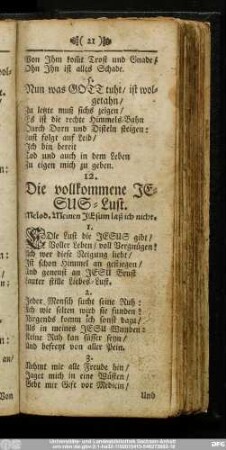 ( 21 )
Von Ihm kom̃t Trost und Gnade/
Ohn Ihn ist alles Schade.
5.
Nun was GOTT tuht/ ist wol-
getahn/
Zu letzte muß sichs zeigen/
Es ist die rechte Himmels-Bahn
Durch Dorn und Disteln steigen:
Lust folgt auf Leid/
Ich bin bereit
Tod und auch in dem Leben
Zu eigen mich zu geben.
12.
Die vollkommene JE-
SUS-Lust.
Melod. Meinen JEsum laß ich nicht.
1.
EDle Lust die JESUS gibt/
Voller Leben/ voll Vergnügen!
Ich wer diese Neigung liebt/
Ist schon Himmel an gestiegen/
Und geneust an JESU Brust
Lauter stille Liebes-Lust.
2.
Jeder Mensch sucht seine Ruh:
Ach wie selten wird sie funden!
Nirgends komm ich sonst dazu/
Als in meines JESU Wunden:
Keine Ruh kan süsser seyn/
Und befreyt von aller Pein.
3.
Nehmt mir alle Freude hin/
Jaget mich in eine Wüsten/
Gebt mir Gift vor Medicin/
Und